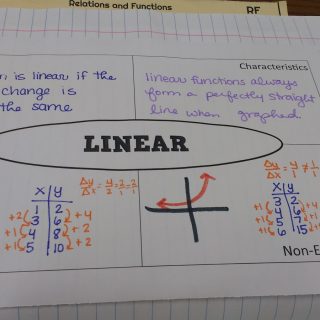 Relations and Functions
RF
n is linear if the
change is
the same
Characteristics
linear functions always
form a perfectly straight
line when graphed.
LINEAR
x | y
1 | 2
3 | 6
4 | 8
5 | 10
+2
+1
+1
+4
+2
+2
Δy/Δx = 4/2 = 2/1 = 2/1
Δy/Δx = 4/1 ≠ 1/1
x | y
3 | 2
4 | 6
5 | 7
6 | 15
+1
+1
+1
+4
+1
Non-E